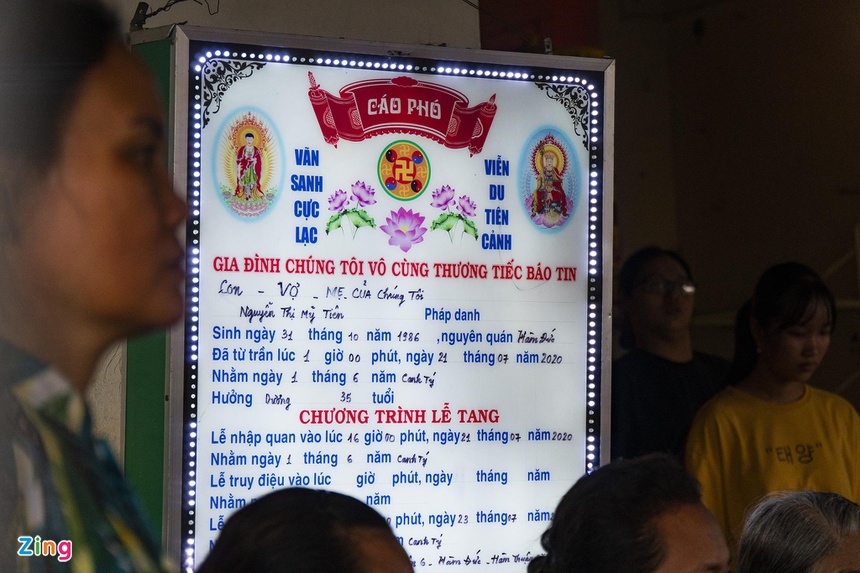 CÁO PHÓ
VÃN
SANH
CỰC
LẠC
VIỄN
DU
TIÊN
CẢNH
GIA ĐÌNH CHÚNG TÔI VÔ CÙNG THƯƠNG TIẾC BÁO TIN
Con - Vợ - MẸ CỦA Chúng Tôi
Nguyễn Thị Mỹ Tiên Pháp danh
Sinh ngày 31 tháng 10 năm 1986 , nguyên quán Hàm Đức
Đã từ trần lúc 1 giờ 00 phút, ngày 21 tháng 07 năm 2020
Nhằm ngày 1 tháng 6 năm Canh Tý
Hưởng Dương 35 tuổi
CHƯƠNG TRÌNH LỄ TANG
Lễ nhập quan vào lúc 16 giờ 00 phút, ngày 21 tháng 07 năm 2020
Nhằm ngày 1 tháng 6 năm Canh Tý
Lễ truy điệu vào lúc giờ phút, ngày tháng năm
Nhằm năm
Lễ phút, ngày 23 tháng 07 năm
Hàm Đức - Hàm
"태양"
Zing